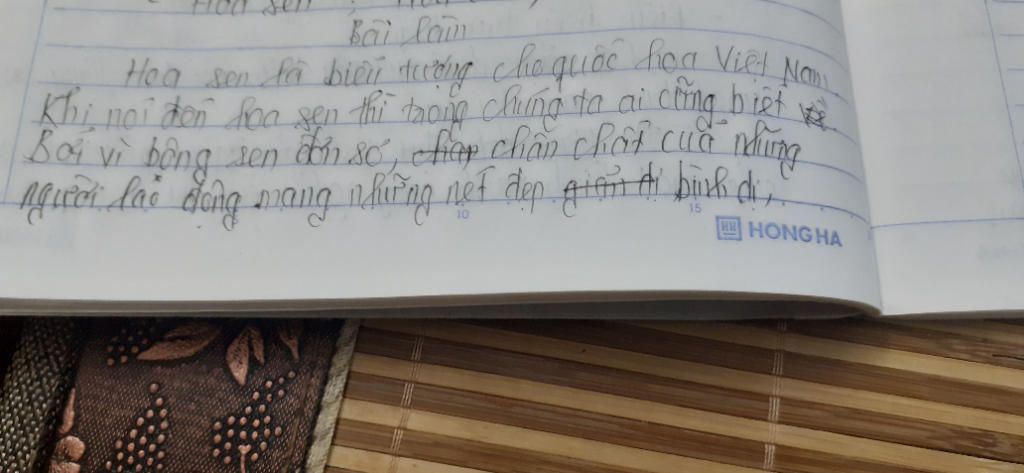 Hoa sen
Bài làm
Hoa sen là biểu tượng cho quốc hoa Việt Nam.
Khi nói đến hoa sen thì trong chúng ta ai cũng biết
Bởi vì bông sen đơn sơ, chân chất của những
người lao động mang những nét đẹp giản dị bình dị,
10
15
HH HONG HA